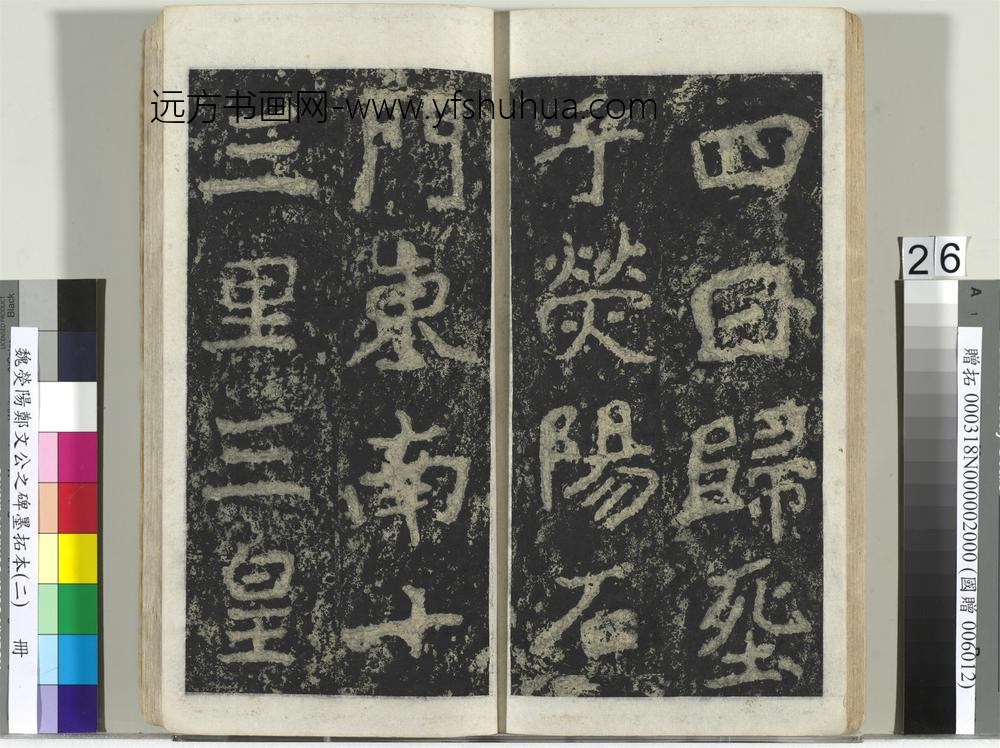 远方书画网-www.yfshuhua.com
四日歸塟
乎熒陽石
門東南十
三里三皇
26
魏熒陽鄭文公之碑墨拓本(二) 冊
贈拓 000318N000002000 (國贈 006012)
Black
A
1